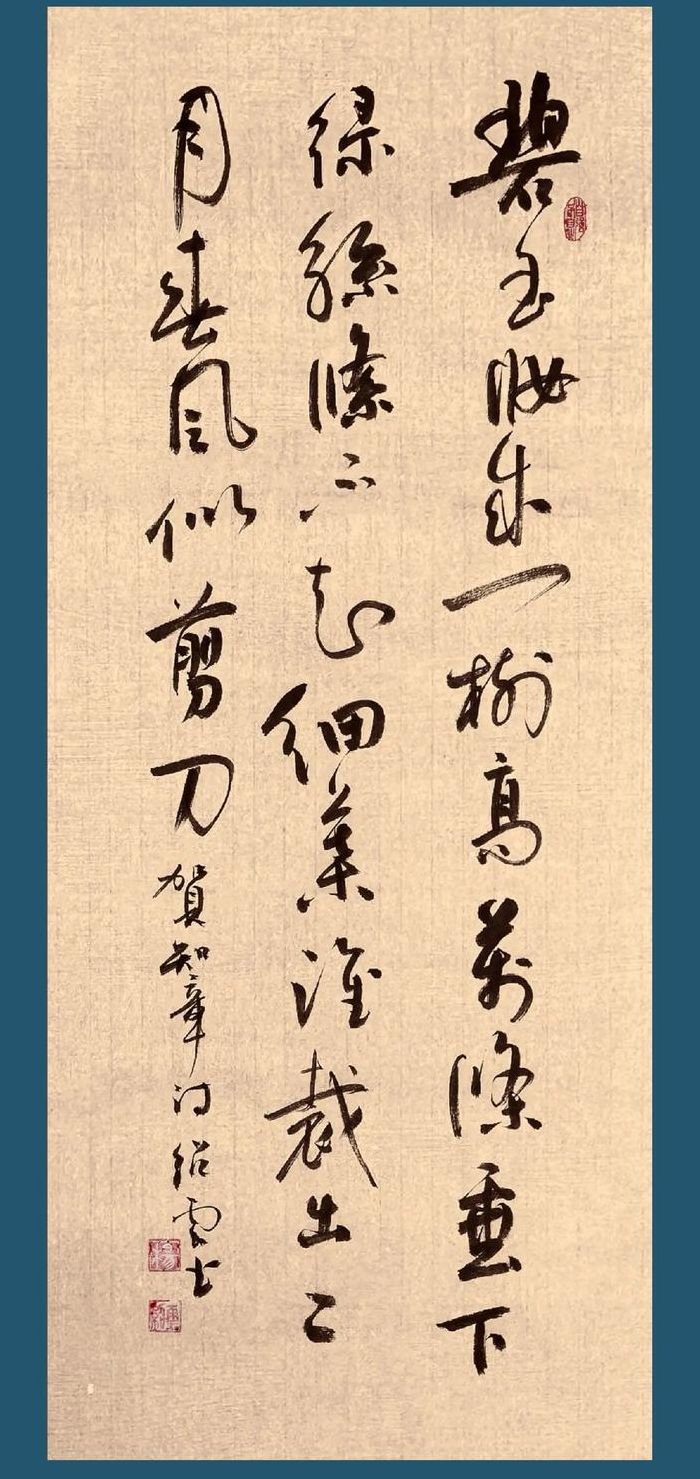 碧玉妝成一樹高萬條垂下
綠絲絛不知細葉誰裁出二
月春風似剪刀賀知章詩紹雲书